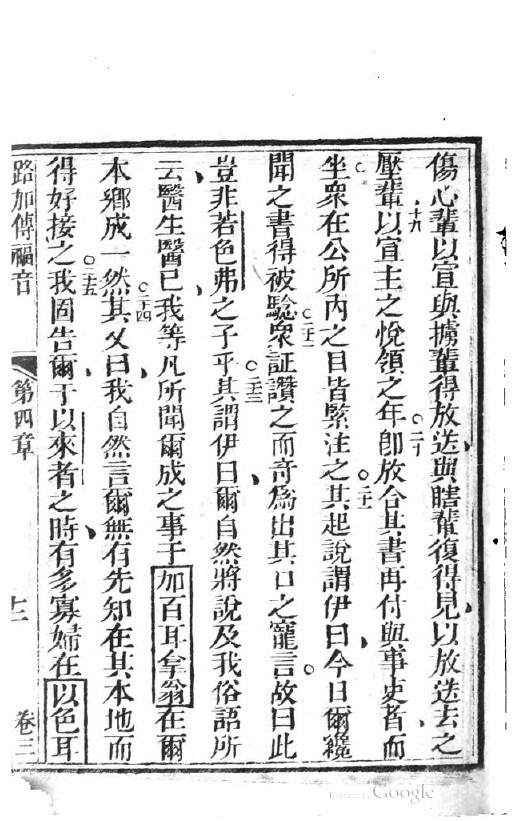 傷心輩以宣與擄輩得放送與瞎輩復得見以放送去之
十九
壓輩以宣主之悅領之年卽放合其書再付與事吏者而
二十
坐衆在公所內之目皆緊注之其起說謂伊曰今日爾纔
二十一
聞之書得被驗衆証讚之而奇爲出其口之寵言故曰此
二十二
豈非若色弗之子乎其謂伊曰爾自然將說及我俗語所
二十三
云醫生醫己我等凡所聞爾成之事于加百耳拿翁在爾
本鄉成一然其又曰我自然言爾無有先知在其本地而
二十四
得好接之我固告爾于以來者之時有多寡婦在以色耳
二十五
路加傳福音
第四章
十二
卷三
Digitized by Google